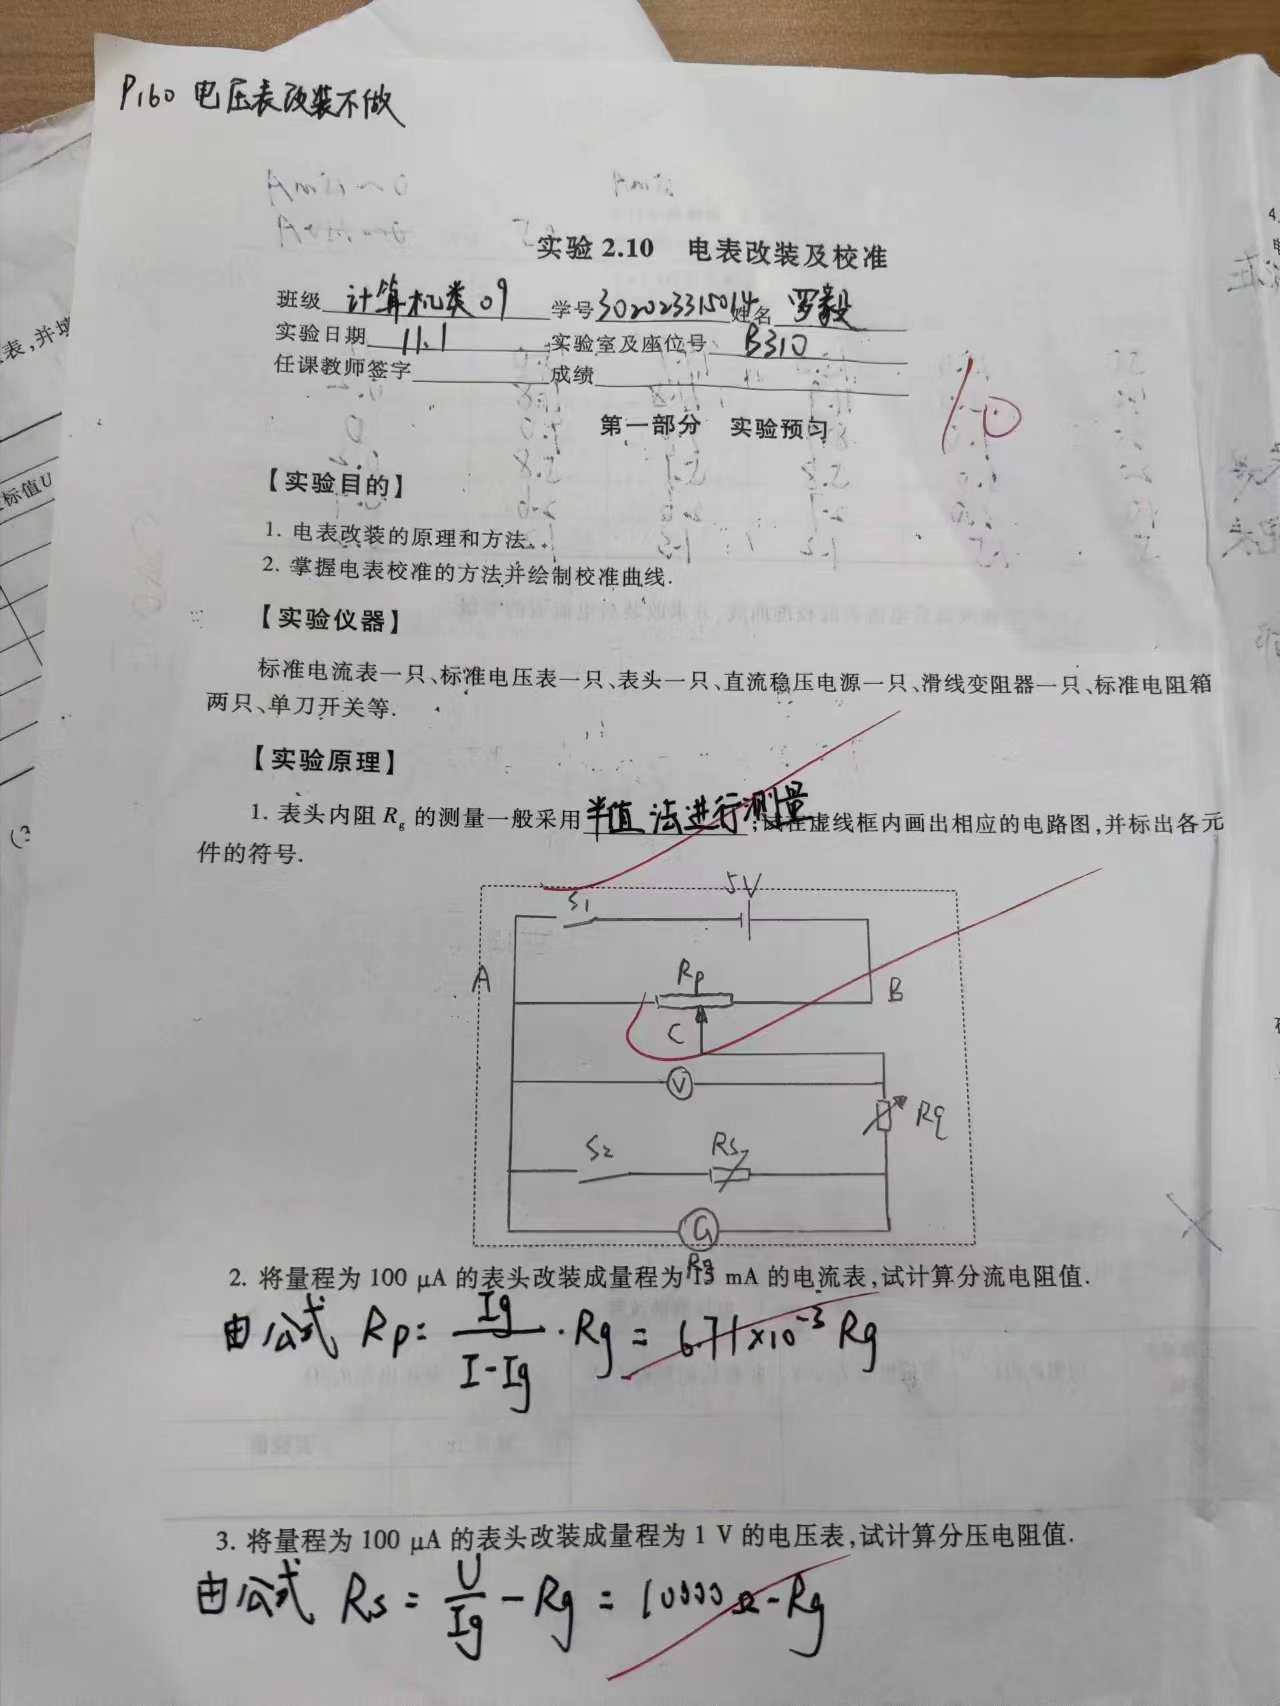 P160 电压表改装不做
实验 2.10 电表改装及校准
班级 计算机类09 学号 302023315014 姓名 罗毅
实验日期 11.1 实验室及座位号 B310
任课教师签字 成绩
10
第一部分 实验预习
【实验目的】
1. 电表改装的原理和方法.
2. 掌握电表校准的方法并绘制校准曲线.
【实验仪器】
标准电流表一只、标准电压表一只、表头一只、直流稳压电源一只、滑线变阻器一只、标准电阻箱
两只、单刀开关等.
【实验原理】
1. 表头内阻 Rg 的测量一般采用 半值法进行测量 ;试在虚线框内画出相应的电路图,并标出各元
件的符号.
S1 5V
A Rp B
C
V
Rq
S2 Rs
G
Rg
2. 将量程为 100 μA 的表头改装成量程为 15 mA 的电流表,试计算分流电阻值.
由公式 Rp = Ig / (I-Ig) · Rg = 6.71×10⁻³ Rg
3. 将量程为 100 μA 的表头改装成量程为 1 V 的电压表,试计算分压电阻值.
由公式 Rs = U / Ig - Rg = 10000Ω - Rg
表,并填
标值U